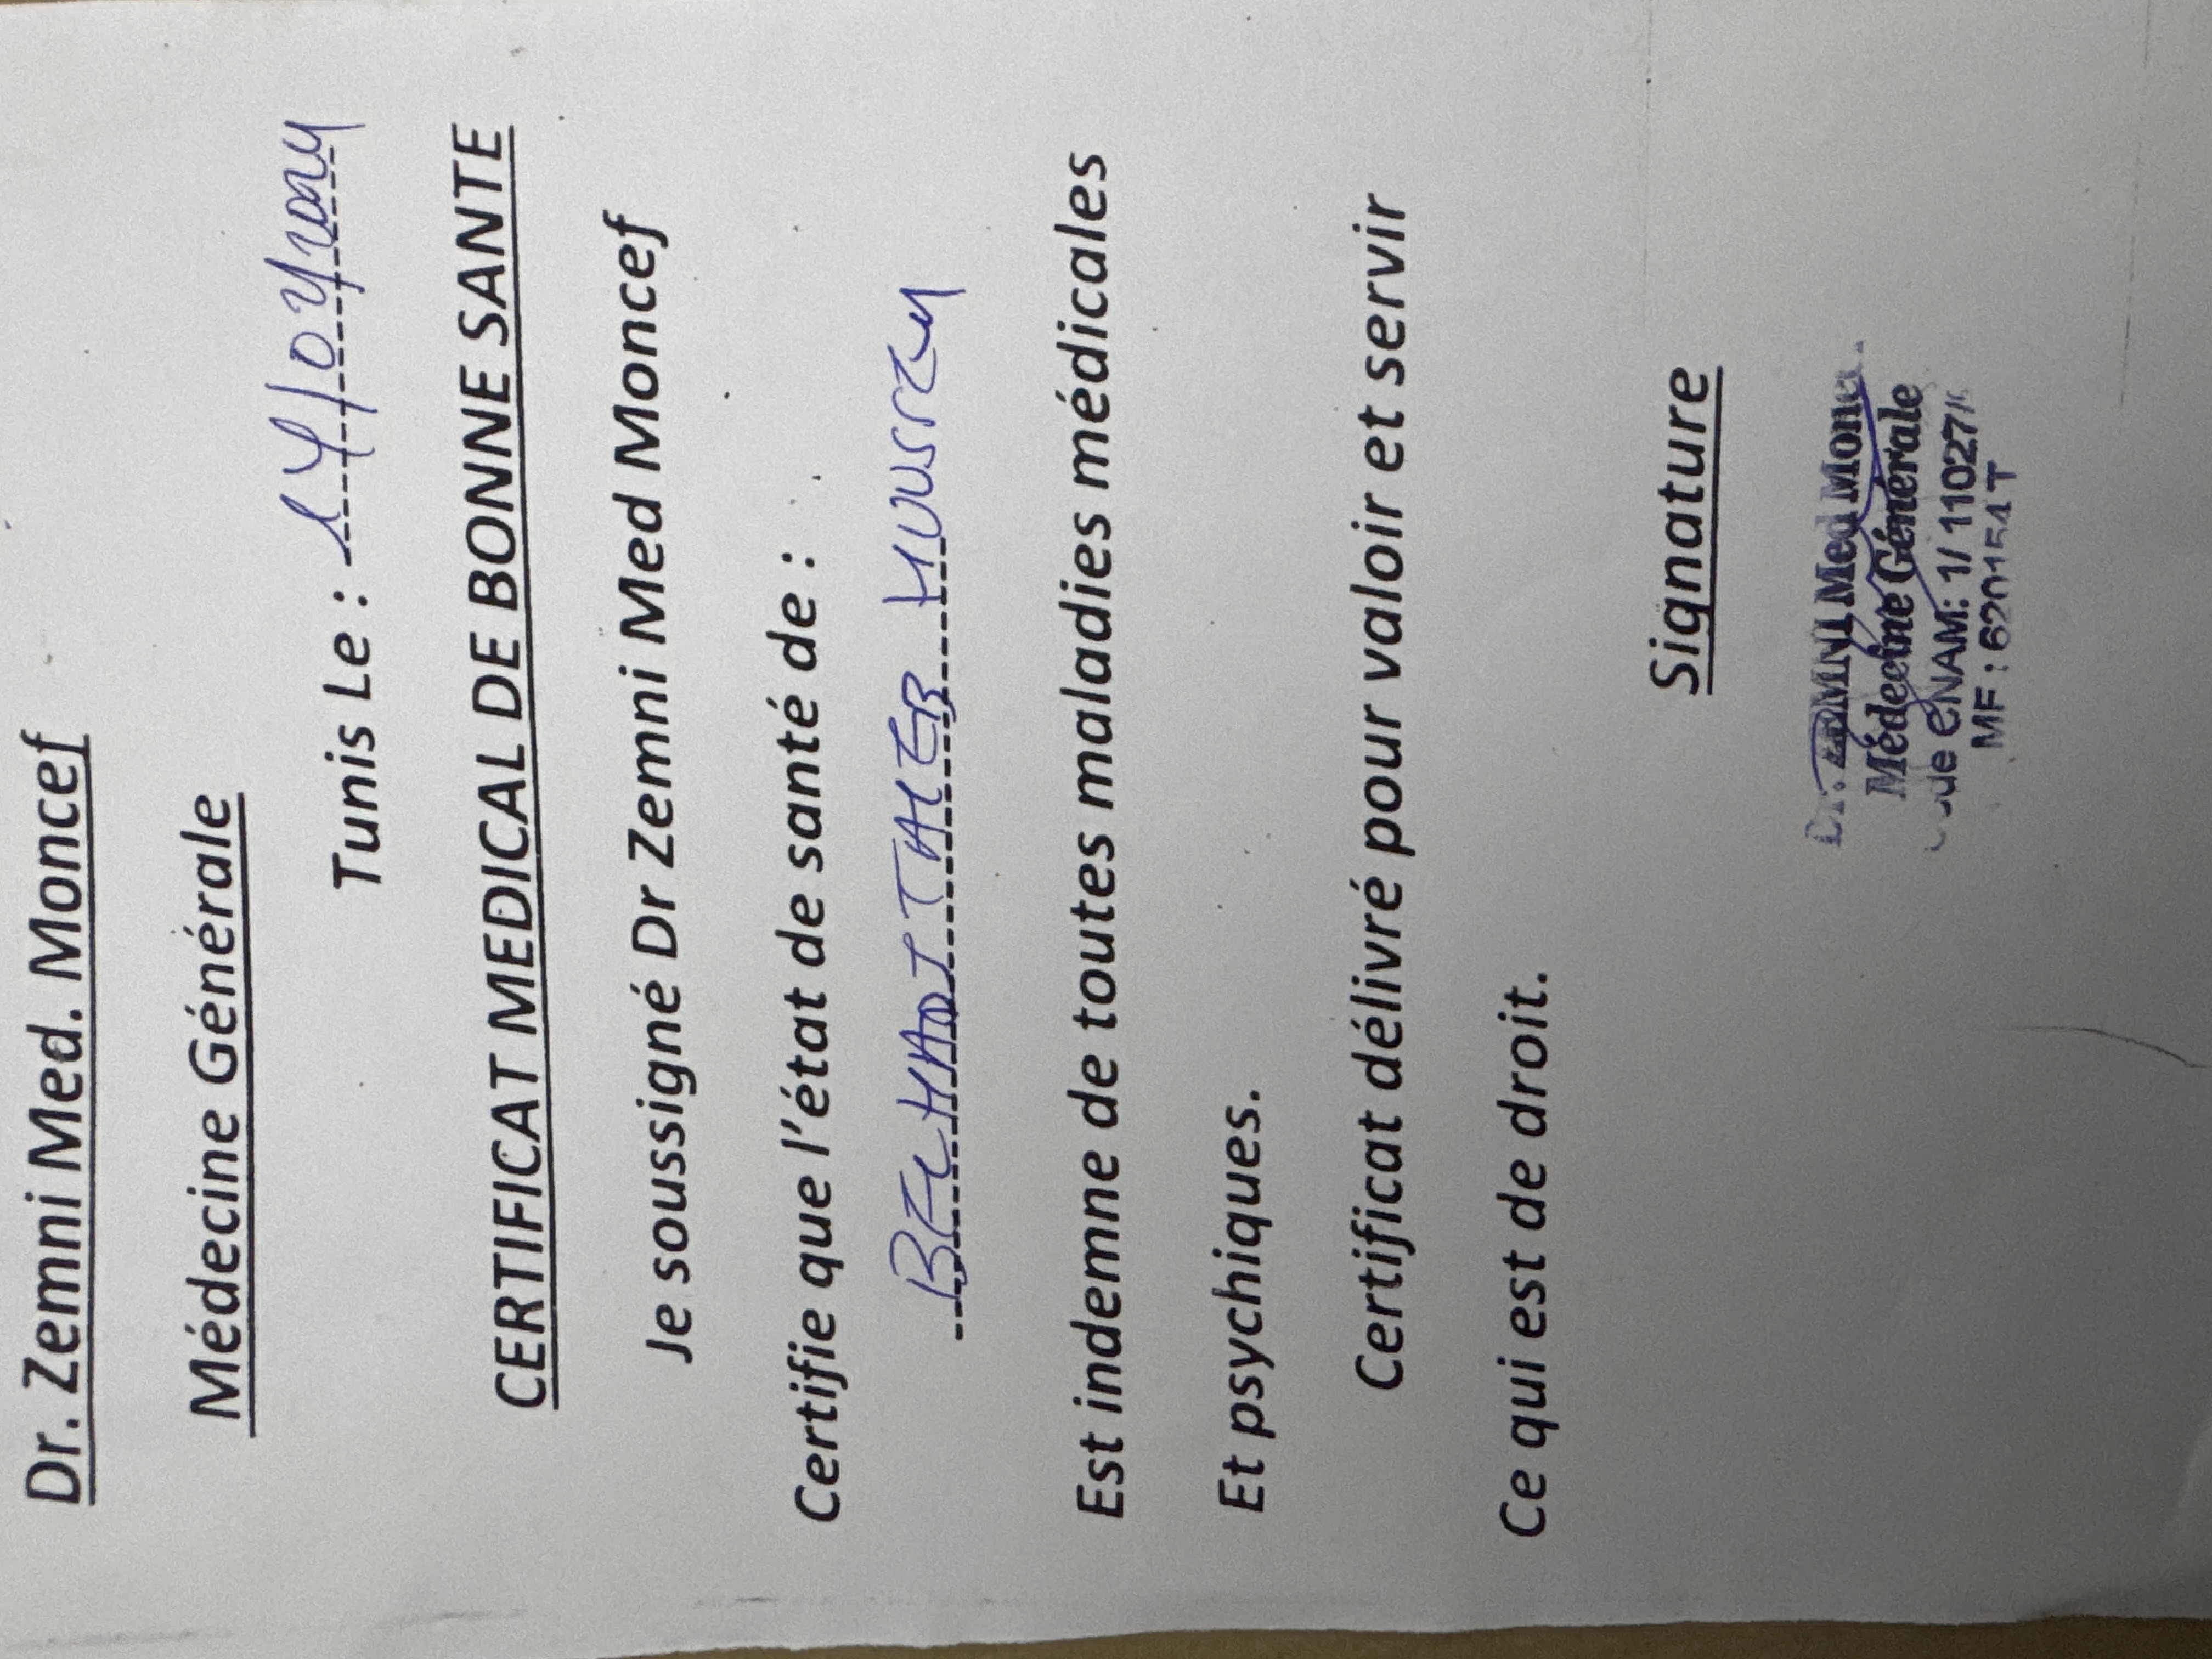 Dr. Zemni Med. Moncef
Médecine Générale
Tunis Le :
CERTIFICAT MEDICAL DE BONNE SANTE
Je soussigné Dr Zemni Med Moncef
Certifie que l'état de santé de :
BELHADJ TAIEB
Est indemne de toutes maladies médicales
Et psychiques.
Certificat délivré pour valoir et servir
Ce qui est de droit.
Signature
Dr. ZEMNI Med
Médecine Générale
CNAM: 1/ 11027/
MF : 620154T